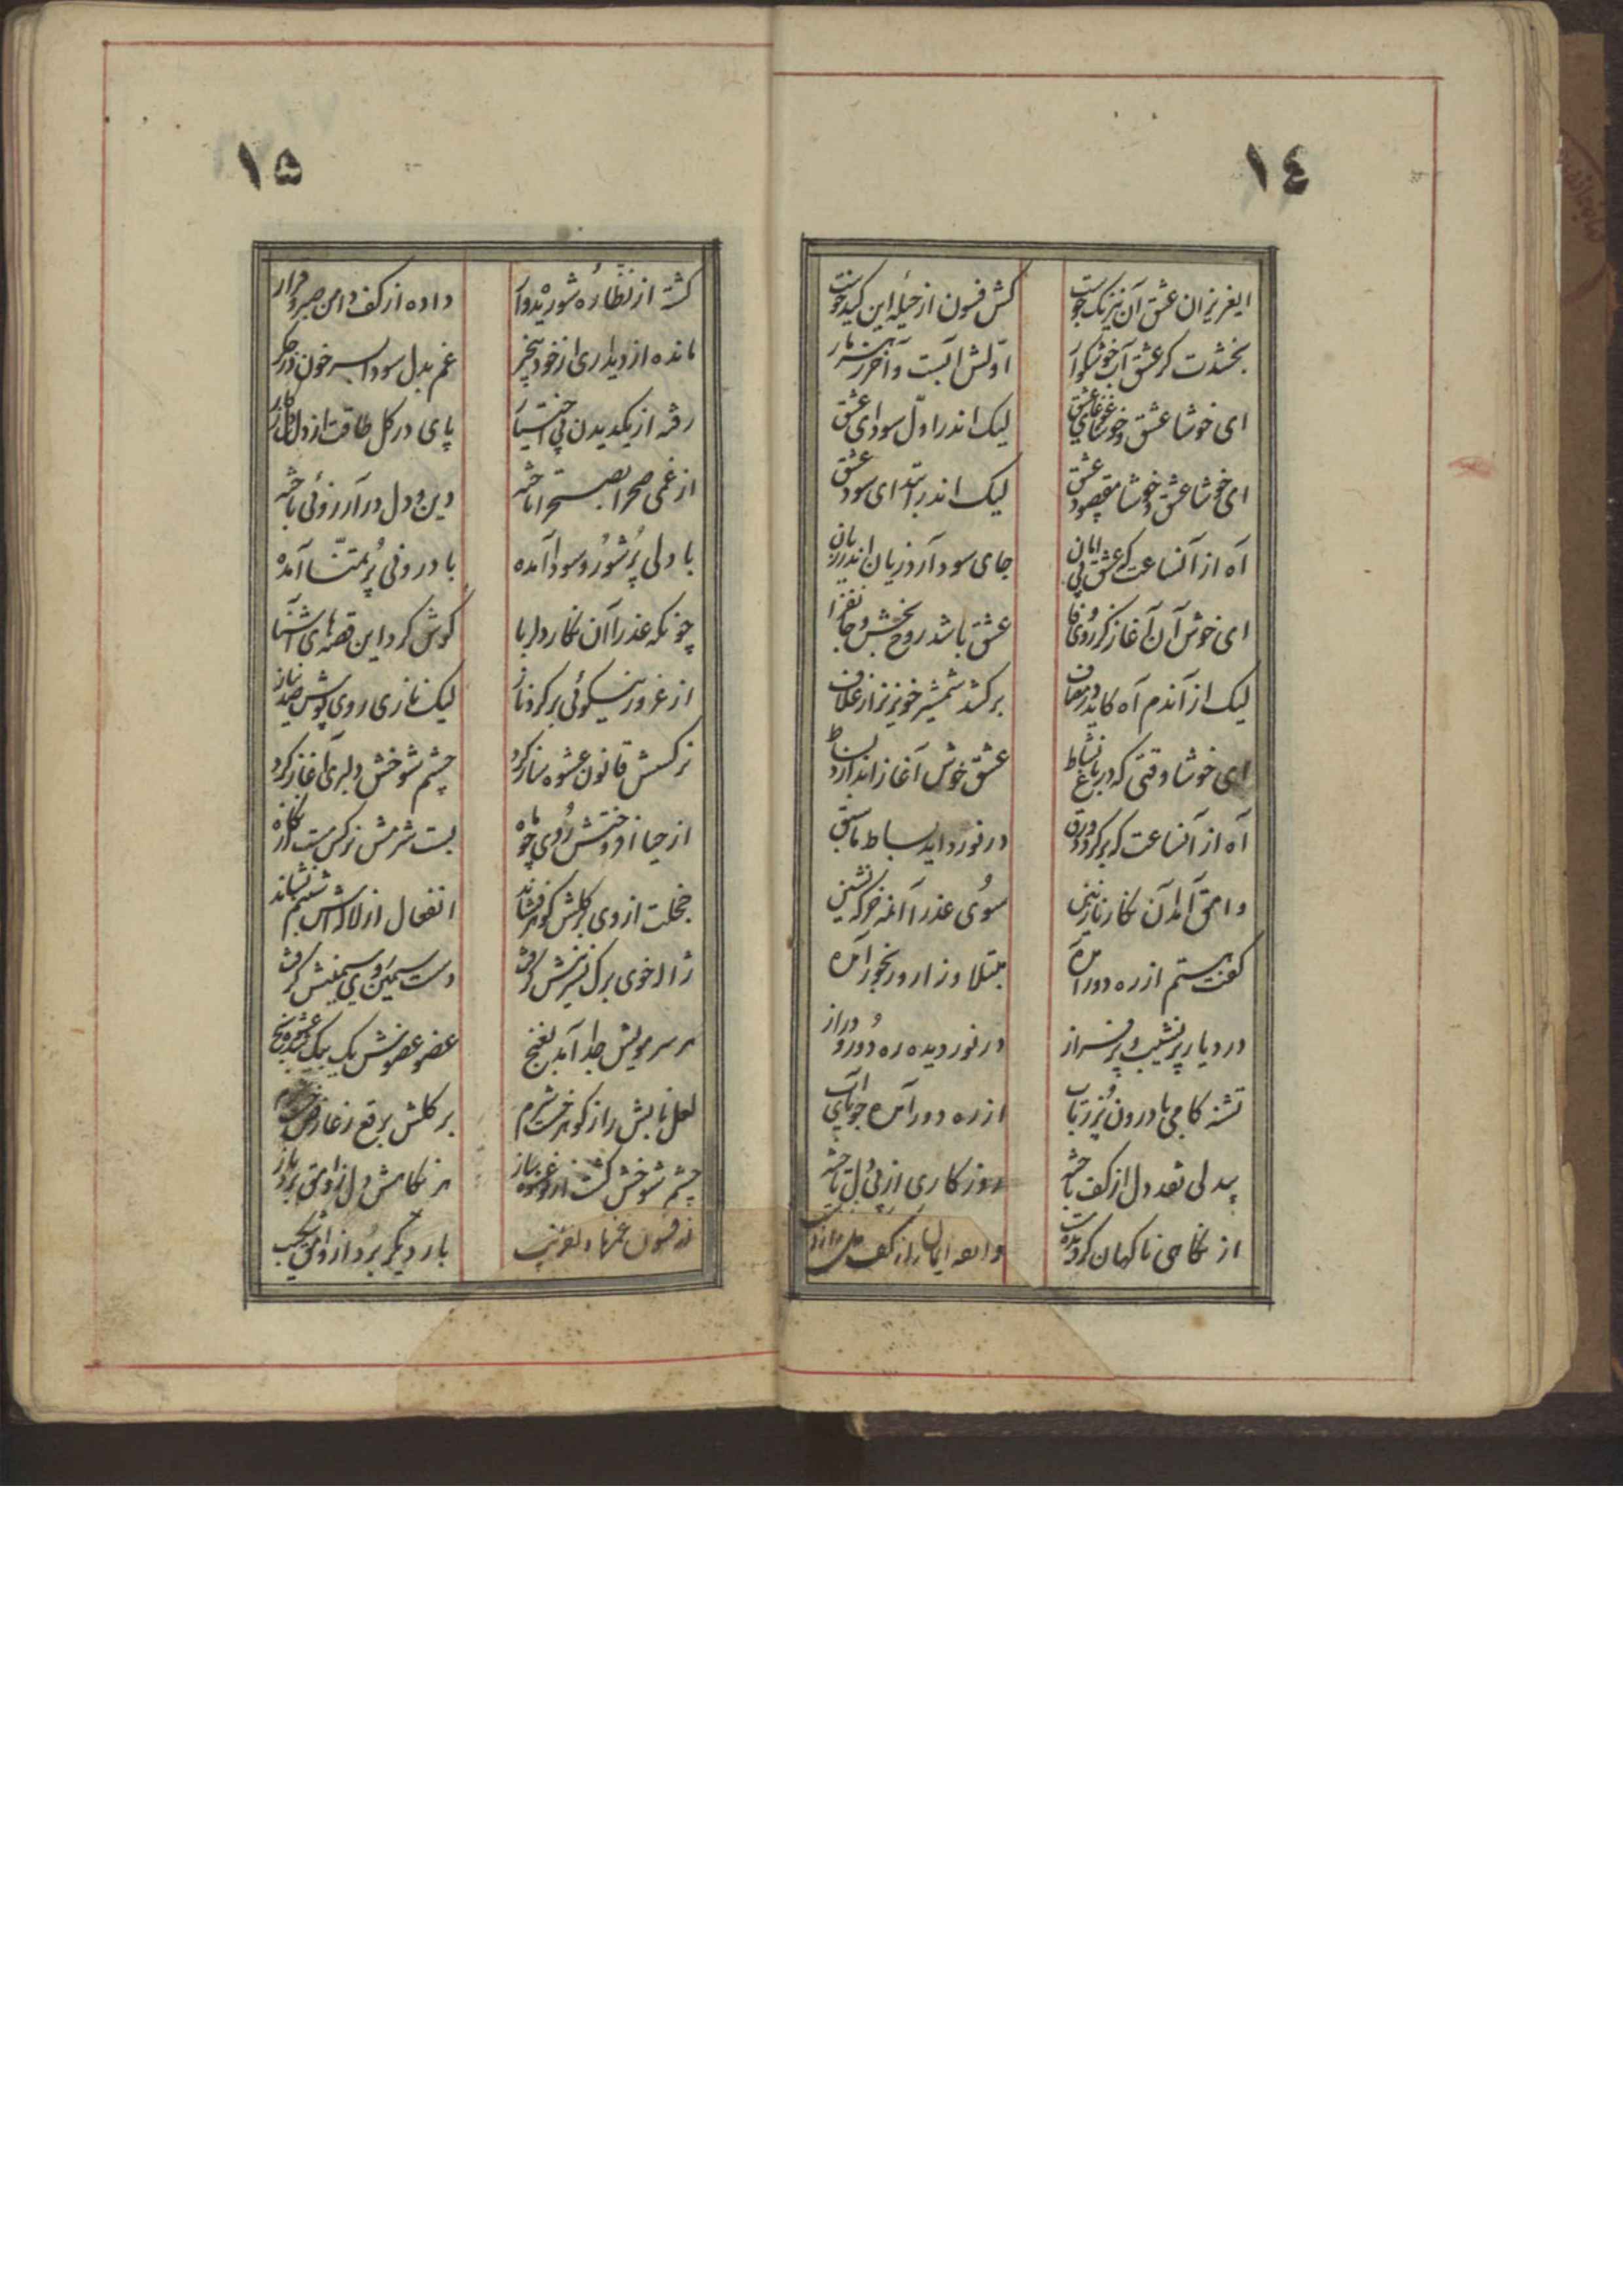 ١٤
ایعزیزان عشق آن نیرنک جوست
کش فسون از حیله این کید خوست
بخشدت کر عشق آب خوشکوار
اوّلش آبست و آخر زهر مار
ای خوشا عشق و خوشا غوغای عشق
لیک اندر اوّل سودای عشق
ای خوشا عشق و خوشا مقصود عشق
لیک اندر ابتدای سود عشق
آه از آنساعت که عشق بی امان
جای سود آرد زیان اندر زیان
ای خوش آن آغاز کز روی وفا
عشق باشد روح بخش و جانفزا
لیک از آندم آه کاید در مصاف
برکشد شمشیر خونریز از غلاف
ای خوشا وقتی که در باغ نشاط
عشق خوش آغاز اندازد بساط
آه از آنساعت که برکردد ورق
در نوردد اید بساط ما سبق
وامق آمد آن نکار نازنین
سوی عذرا آنمه خرکه نشین
کفت هستم از ره دور آمده
مبتلا و زار و رنجور آمده
در دیار پر نشیب و پر فراز
در نوردیده ره دور و دراز
تشنه کامی با درون پر ز تاب
از ره دور آمده جویای آب
بیدلی نقد دل از کف باخته
روزکاری از پی دل تاخته
از نکاهی ناکهان کردیده مست
داده ایمان را ز کف دل را ز دست
١٥
کشته از نظّاره شوریده وار
داده از کف دامن صبر و قرار
مانده از دیداری از خود بیخبر
غم بدل سودا بسر خون در جکر
رفته از یکدیدن پی اختیار
پای در کل طاقت از دل دل ز کار
از غمی صحرا بصحرا تاخته
دین و دل در آرزوئی باخته
با دلی پر شور و سودا آمده
با درونی پر تمنّا آمده
چونکه عذرا آن نکار دلربا
کوش کرد این قصه های آشنا
از غرور نیکوئی بر کرد ناز
لیک نازی روی پوش صد نیاز
نرکسش قانون عشوه ساز کرد
چشم شوخش دلبری آغاز کرد
از حیا افروختش روی چو ماه
بست شرمش نرکس مست از نکاه
خجلت از وی بر کلش کوهر فشاند
انفعال از لاله اش شبنم نشاند
ژاله خوی برک نسرینش کرفت
دست سیمین روی سیمینش کرفت
هر سر مویش جدا آمد بغنج
عضو عضوش یک بیک شد عشوه سنج
لعل نابش راز کوهر خست نرم
بر کلش برقع ز عارض
چشم شوخش کشت از نو عشوه ساز
هر نکاهش دل ز وامق برد باز
از فسون غمزهای دلفریب
بار دیکر برد از وامق شکیب